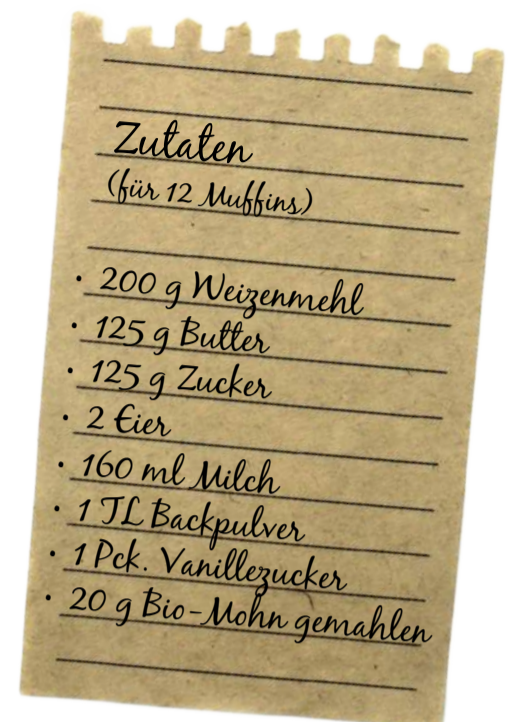 Zutaten
(für 12 Muffins)
• 200 g Weizenmehl
• 125 g Butter
• 125 g Zucker
• 2 Eier
• 160 ml Milch
• 1 TL Backpulver
• 1 Pck. Vanillezucker
• 20 g Bio-Mohn gemahlen